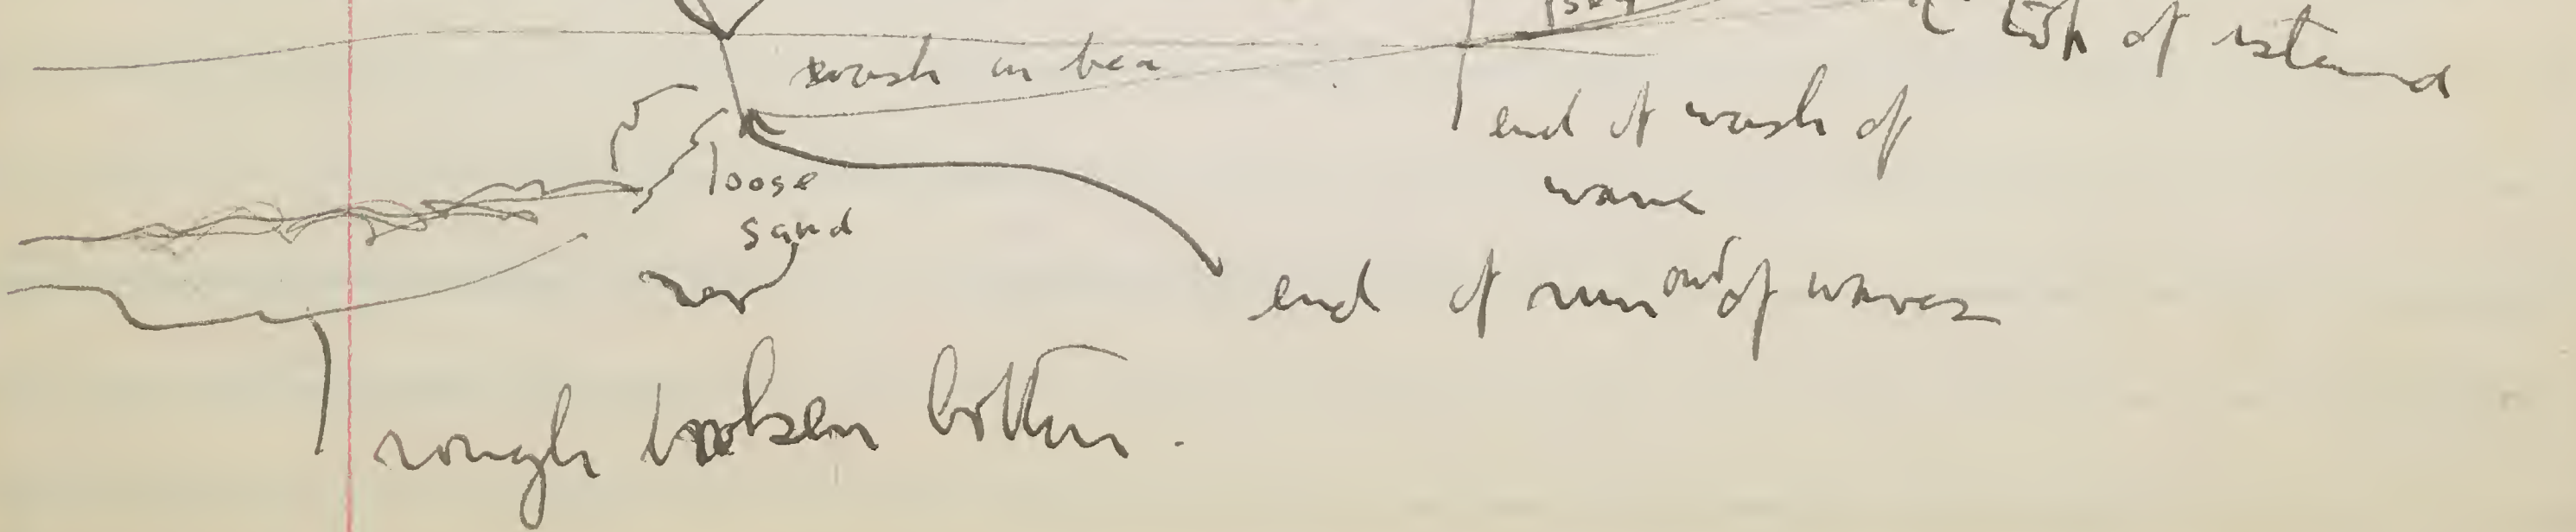 top of island
wash in
end of wash of
wave
loose
sand
end of run out of waves
rough broken bottom.